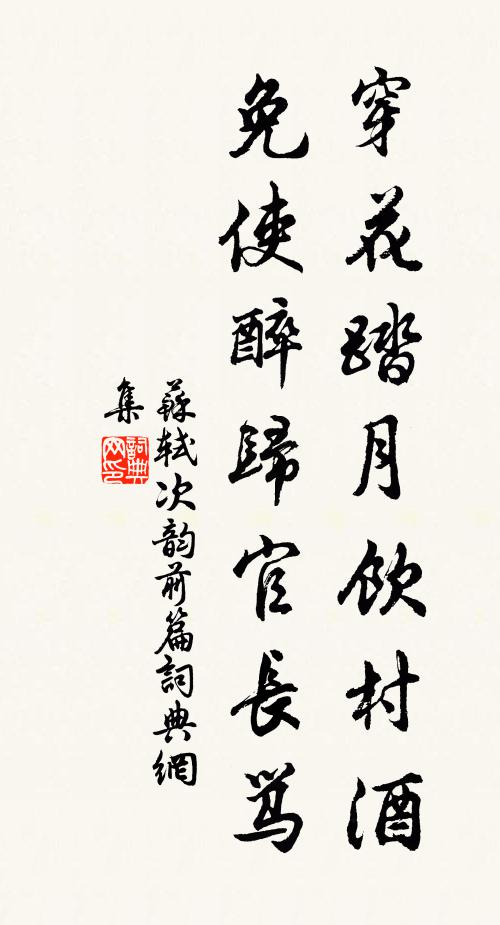 穿花踏月飲村酒
免使醉歸官長罵
蘇軾次韵前篇詞典網
集
詞典
网印